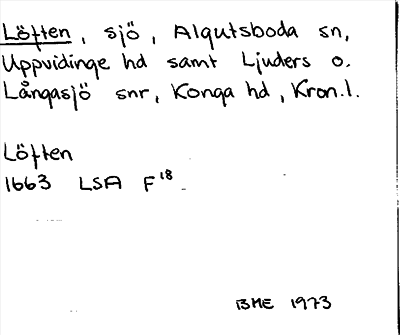 Löften, sjö, Algutsboda sn,
Uppvidinge hd samt Ljuders o.
Långasjö snr, Konga hd, Kron.l.
Löften
1663 LSA F18
BME 1973